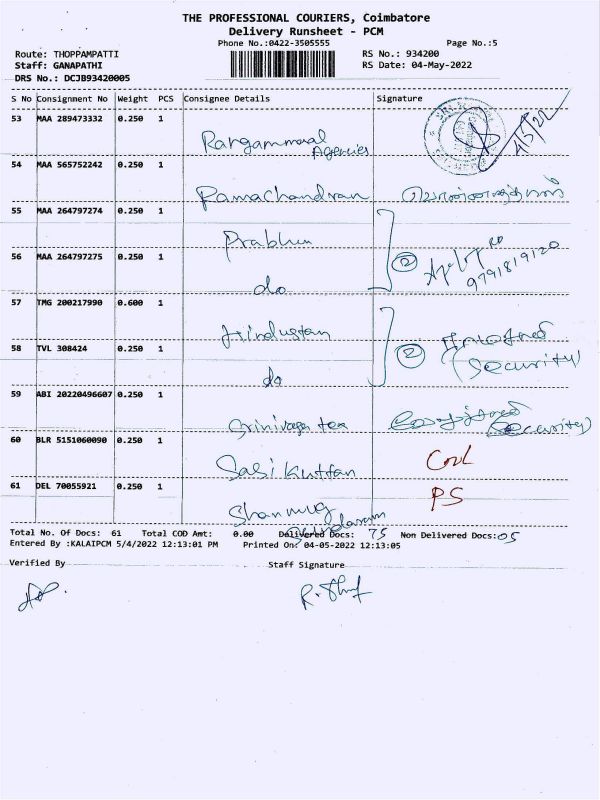 THE PROFESSIONAL COURIERS, Coimbatore
Delivery Runsheet - PCM
Phone No.:0422-3505555
Page No.:5
Route: THOPPAMPATTI
RS No.: 934200
Staff: GANAPATHI
RS Date: 04-May-2022
DRS No.: DCJB93420005
S No Consignment No Weight PCS Consignee Details Signature
53 MAA 289473332 0.250 1
Rangammal Agencies
4/5/22
54 MAA 565752242 0.250 1
Ramachandran
55 MAA 264797274 0.250 1
Prabhu
56 MAA 264797275 0.250 1
do
2
9791819120
57 TMG 200217990 0.600 1
Hindustan
58 TVL 308424 0.250 1
do
2
(Security)
59 ABI 20220496607 0.250 1
Srinivasa tex
(Security)
60 BLR 5151060090 0.250 1
Sasi Kuttan
61 DEL 70055921 0.250 1
Shanmuga Sundaram
PS
Total No. Of Docs: 61 Total COD Amt: 0.00 Delivered Docs: 75 Non Delivered Docs:05
Entered By :KALAIPCM 5/4/2022 12:13:01 PM Printed On: 04-05-2022 12:13:05
Verified By
Staff Signature